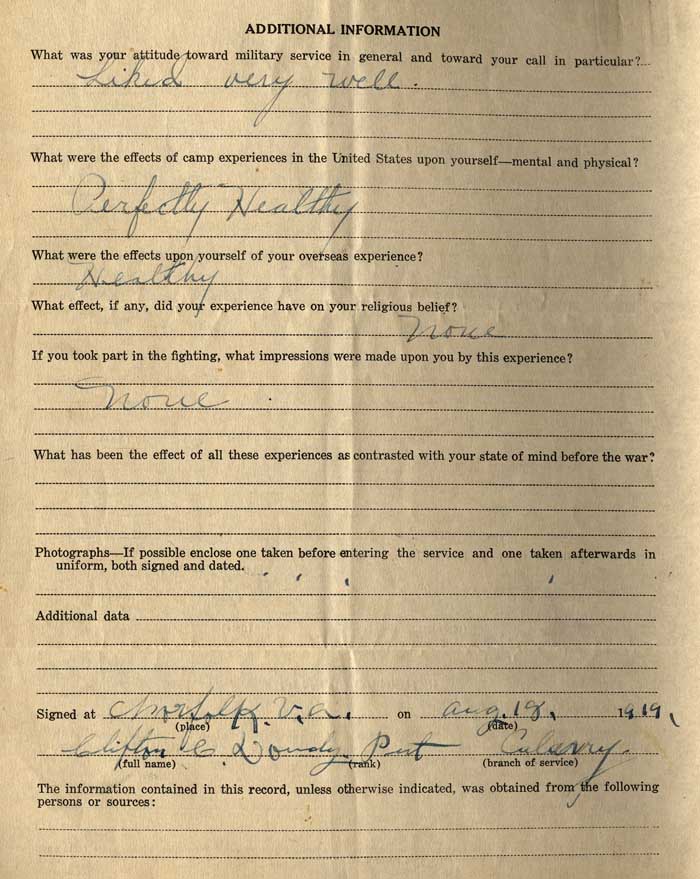 ADDITIONAL INFORMATION
What was your attitude toward military service in general and toward your call in particular?
Liked very well.
What were the effects of camp experiences in the United States upon yourself—mental and physical?
Perfectly Healthy
What were the effects upon yourself of your overseas experience?
Healthy
What effect, if any, did your experience have on your religious belief?
None
If you took part in the fighting, what impressions were made upon you by this experience?
None
What has been the effect of all these experiences as contrasted with your state of mind before the war?
Photographs—If possible enclose one taken before entering the service and one taken afterwards in
uniform, both signed and dated.
Additional data
Signed at Norfolk, Va. on Aug. 18, 1919,
(place) (date)
Clifton C
(full name) (rank) (branch of service)
The information contained in this record, unless otherwise indicated, was obtained from the following
persons or sources: